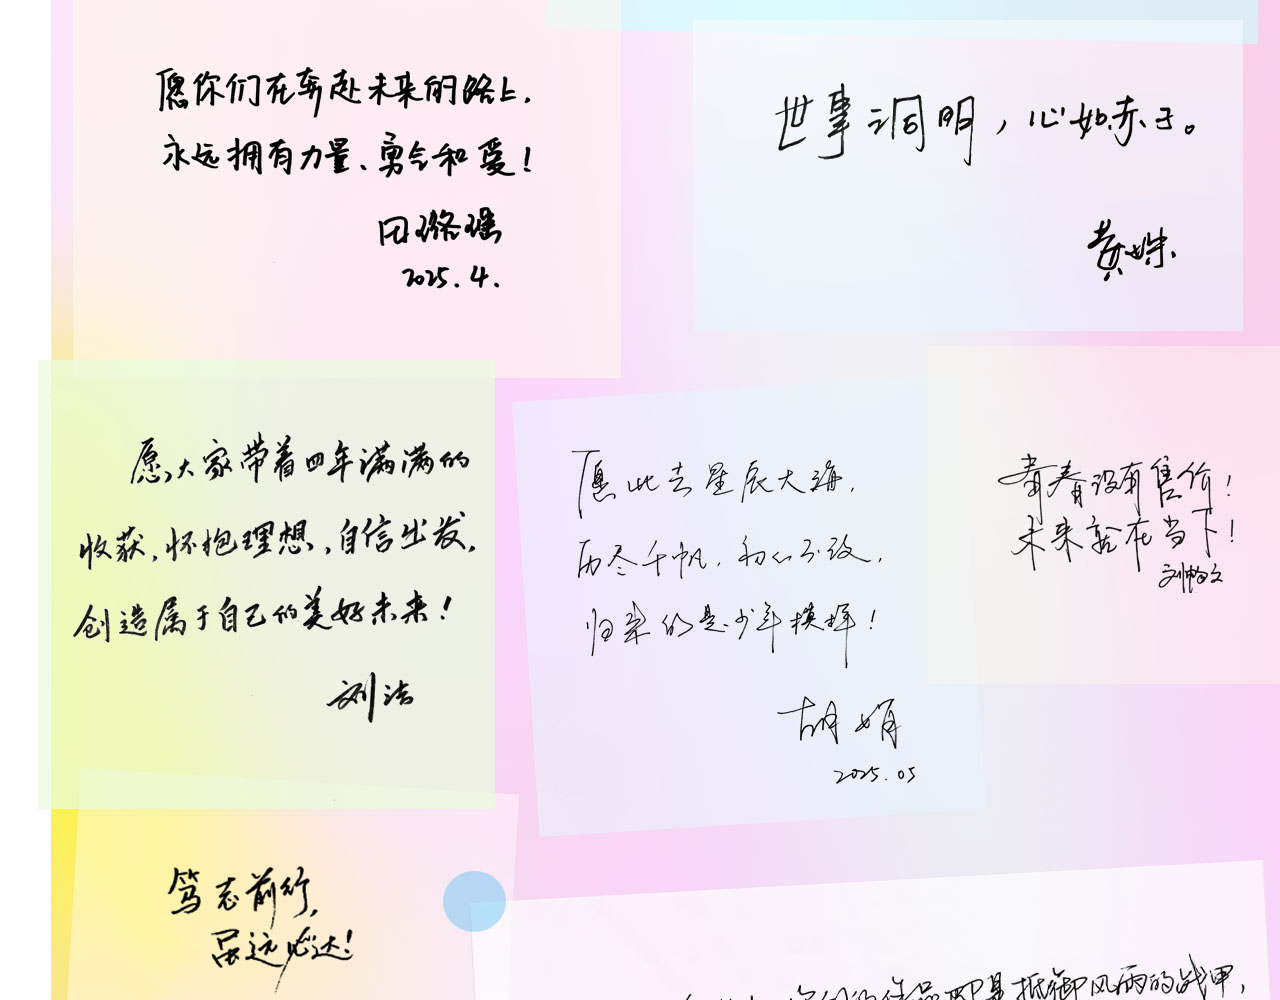 愿你们在奔赴未来的路上，
永远拥有力量、勇气和爱！
田璐瑶
2025.4.
世事洞明，心如赤子。
黄姝
愿大家带着四年满满的
收获，怀抱理想，自信出发，
创造属于自己的美好未来！
刘洁
愿此去星辰大海，
历尽千帆，初心不改，
归来仍是少年模样！
胡娟
2025.05
青春没有售价！
未来就在当下！
笃志前行，
虽远必达！
作品即是抵御风雨的战甲，